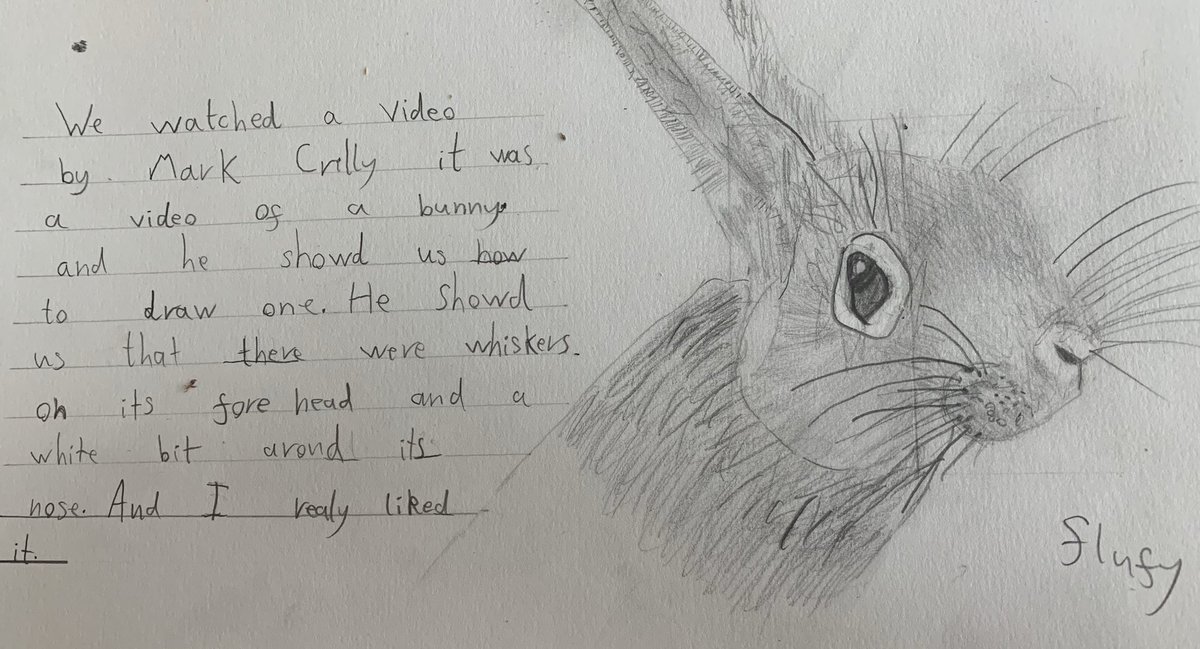 We watched a video
by. Mark Crilly it was
a video of a bunny.
and he showd us how
to draw one. He showd
us that there were whiskers.
on its fore head and a
white bit arond its
nose. And I realy liked
it.
flufy